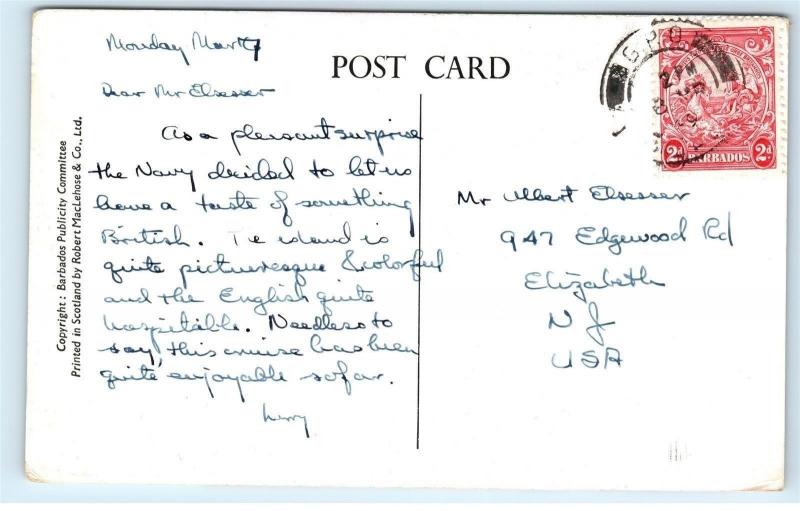 Monday Mar 7
POST CARD
Dear Mr Elsesser
As a pleasant surprise
the Navy decided to let us
have a taste of something
British. Te island is
quite picturesque & colorful
and the English quite
hospitable. Needless to
say, this cruise has been
quite enjoyable so far.
Copyright: Barbados Publicity Committee
Printed in Scotland by Robert MacLehose & Co., Ltd.
G.P.O.
2 PM
2d BARBADOS 2d
Mr Albert Elsesser
947 Edgewood Rd
Elizabeth
N J
USA